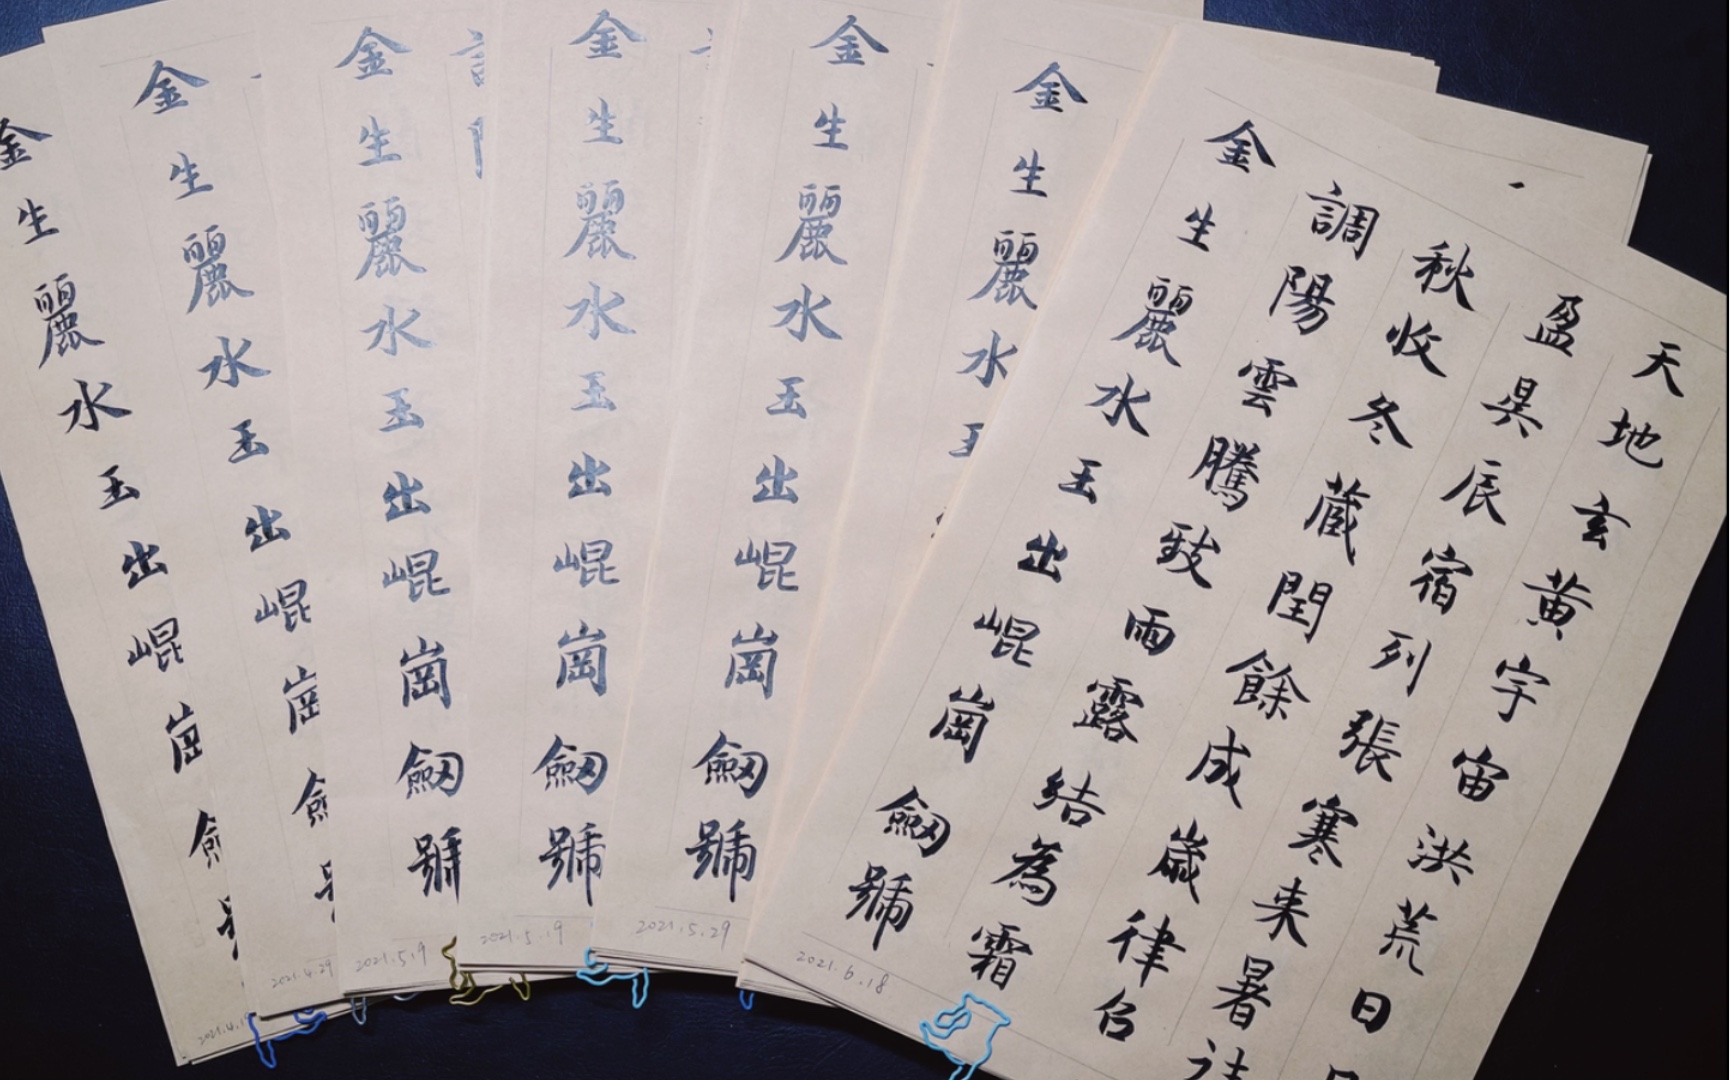 天地玄黄宇宙洪荒日
盈昃辰宿列張寒来暑往
秋收冬蔵閏餘成歳律吕
調陽雲騰致雨露結為霜
金生麗水玉出崐崗劒號
2021.6.18
金生麗水玉
金生麗水玉出崐崗劒號
2021.5.29
金生麗水玉出崐崗劒號
2021.5.19
金生麗水玉出崐崗劒號
2021.5.9
金生麗水玉出崐崗
2021.4.29
金生麗水玉出崐崗